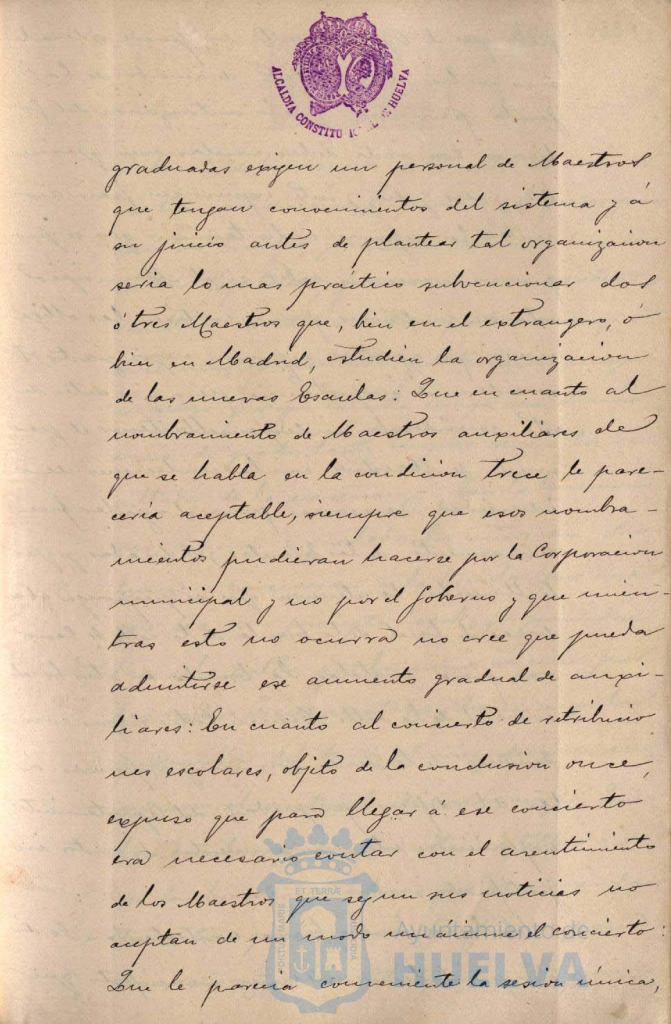 ALCALDIA CONSTITU
HUELVA
graduadas exigen un personal de Maestros
que tengan conocimientos del sistema y á
su juicio antes de plantear tal organizacion
seria lo mas práctico subvencionar dos
ó tres Maestros que, bien en el extrangero, ó
bien en Madrid, estudien la organizacion
de las nuevas Escuelas: Que en cuanto al
nombramiento de Maestros auxiliares de
que se habla en la condicion trece le pare-
ceria aceptable, siempre que esos nombra-
mientos pudieran hacerse por la Corporacion
municipal y no por el Gobierno y que mien-
tras esto no ocurra no cree que pueda
admitirse ese aumento gradual de auxi-
liares: En cuanto al concierto de retribucio
nes escolares, objeto de la conclusion once,
expuso que para llegar á ese concierto
era necesario contar con el asentimiento
de los Maestros que segun sus noticias no
aceptan de un modo unánime el concierto:
Que le parecia conveniente la sesión única,
Ayuntamiento de
HUELVA